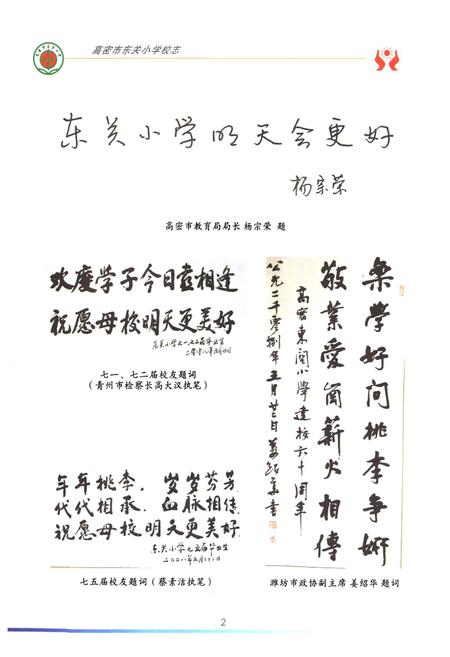 高密市东关小学校志
东关小学明天会更好
杨宗荣
高密市教育局局长 杨宗荣 题
欢度学子今日喜相逢
祝愿母校明天更美好
东关小学七一、七二届毕业生
二零零八年
七一、七二届校友题词
（青州市检察长高大汉执笔）
年年桃李，岁岁芬芳
代代相承，血脉相传
祝愿母校明天更美好
东关小学七五届毕业生
二〇〇八年五月二十二日
七五届校友题词（蔡素洁执笔）
乐学好问桃李争妍
敬業愛崗薪火相傳
高密東關小學建校六十周年
公元二千零捌年五月廿三日姜绍华書
潍坊市政协副主席 姜绍华 题词
2